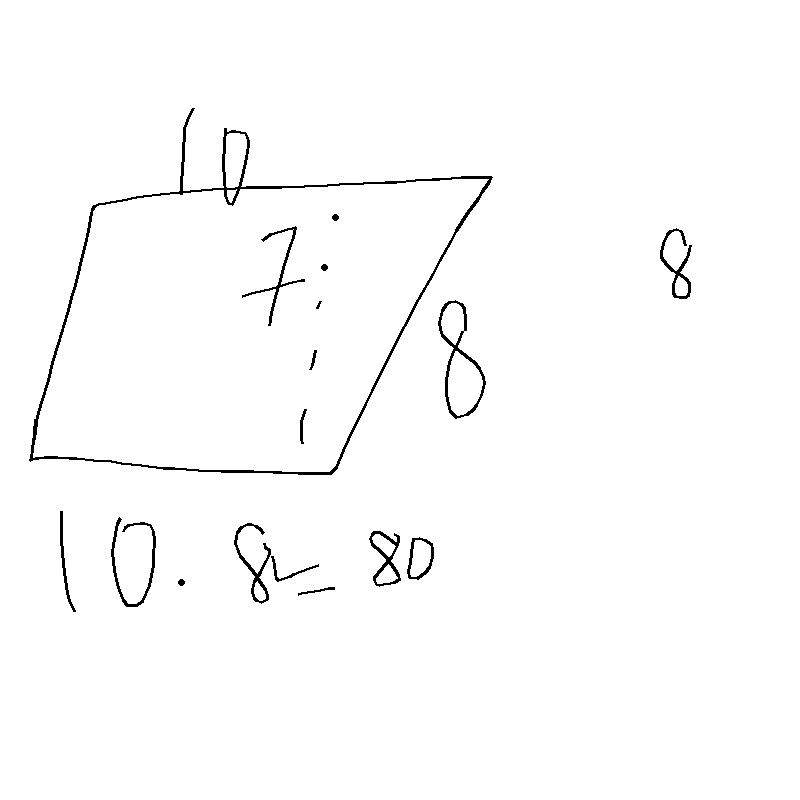 10
7
8
8
10 · 8 = 80